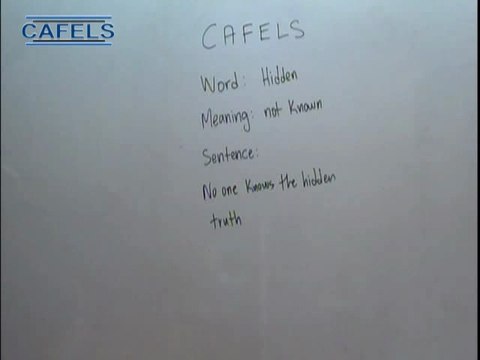 CAFELS
CAFELS
Word: Hidden
Meaning: not Known
Sentence:
No one Knows the hidden
truth